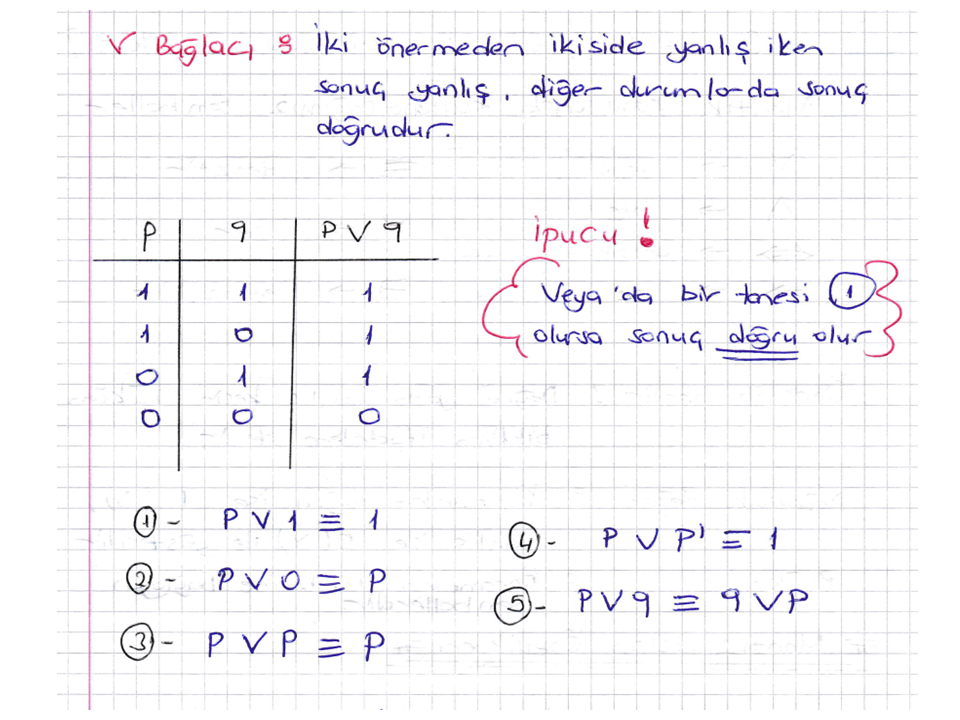 V Bağlacı : İki önermeden ikiside yanlış iken
sonuç yanlış, diğer durumlarda sonuç
doğrudur.
P q P V q
1 1 1
1 0 1
0 1 1
0 0 0
ipucu !
Veya'da bir tanesi 1
olursa sonuç doğru olur
1- P V 1 ≡ 1
2- P V 0 ≡ P
3- P V P ≡ P
4- P V P' ≡ 1
5- P V q ≡ q V P